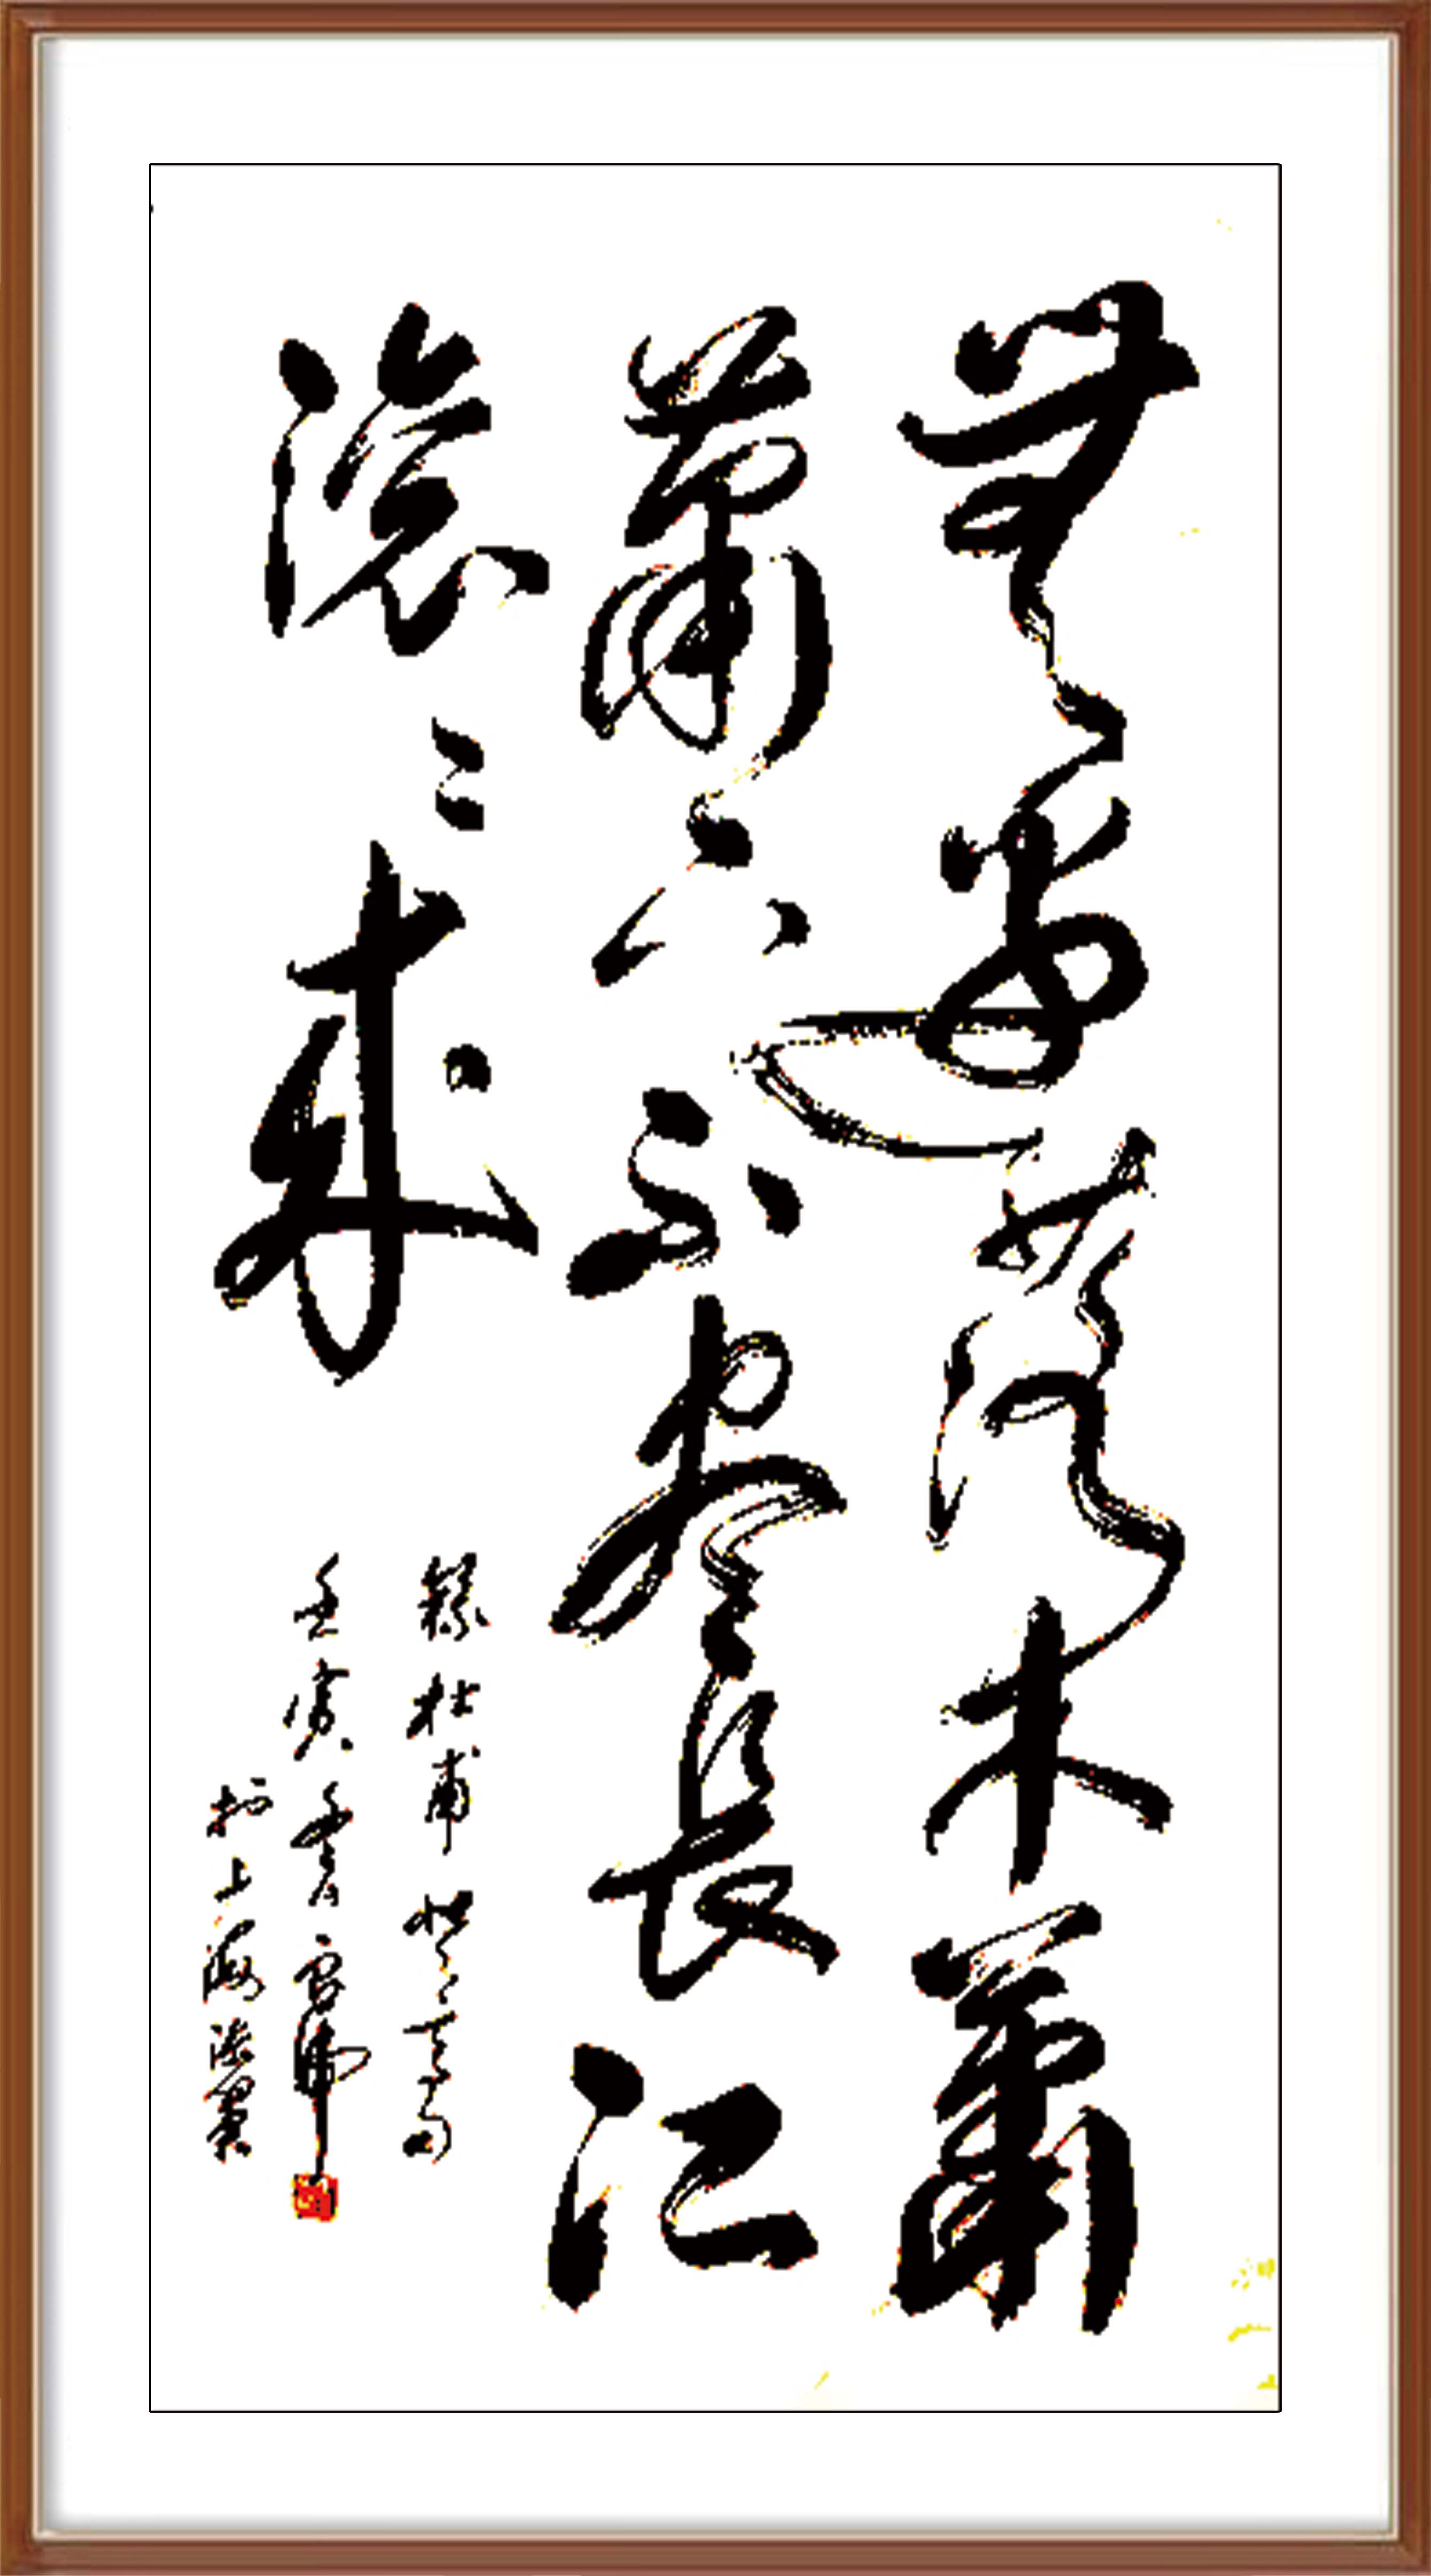 無邊落木蕭
蕭下不盡長江
滾滾來
錄杜甫登高句
壬寅
於上海